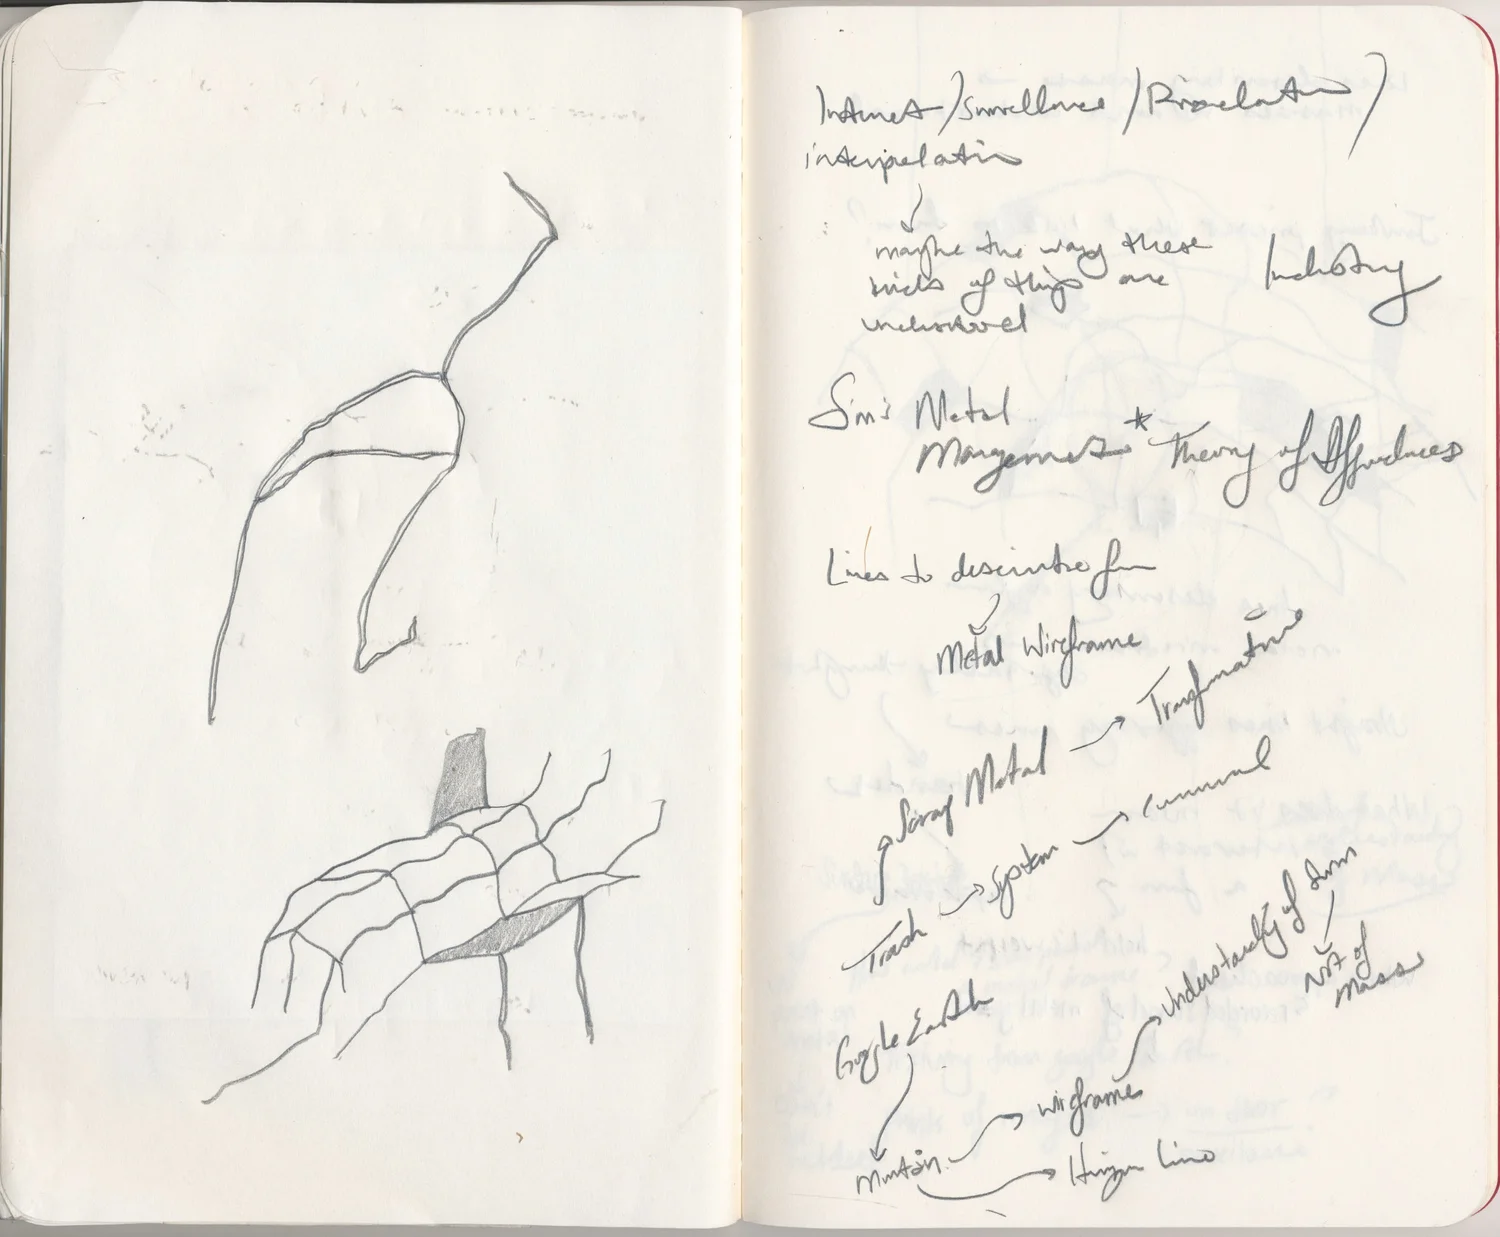 Internet / Surveillance / Proxelation /
interpelation
maybe the way these
kinds of things are
understood
Industry
Sims Metal
Mangement * Theory of Affordances
Lines to describe form
Metal Wireframe
Scrap Metal → Transformation
Trash → System → communal
Google Earth
Mountain → wireframe → understanding of form
Not of
Mass
Horizon Line